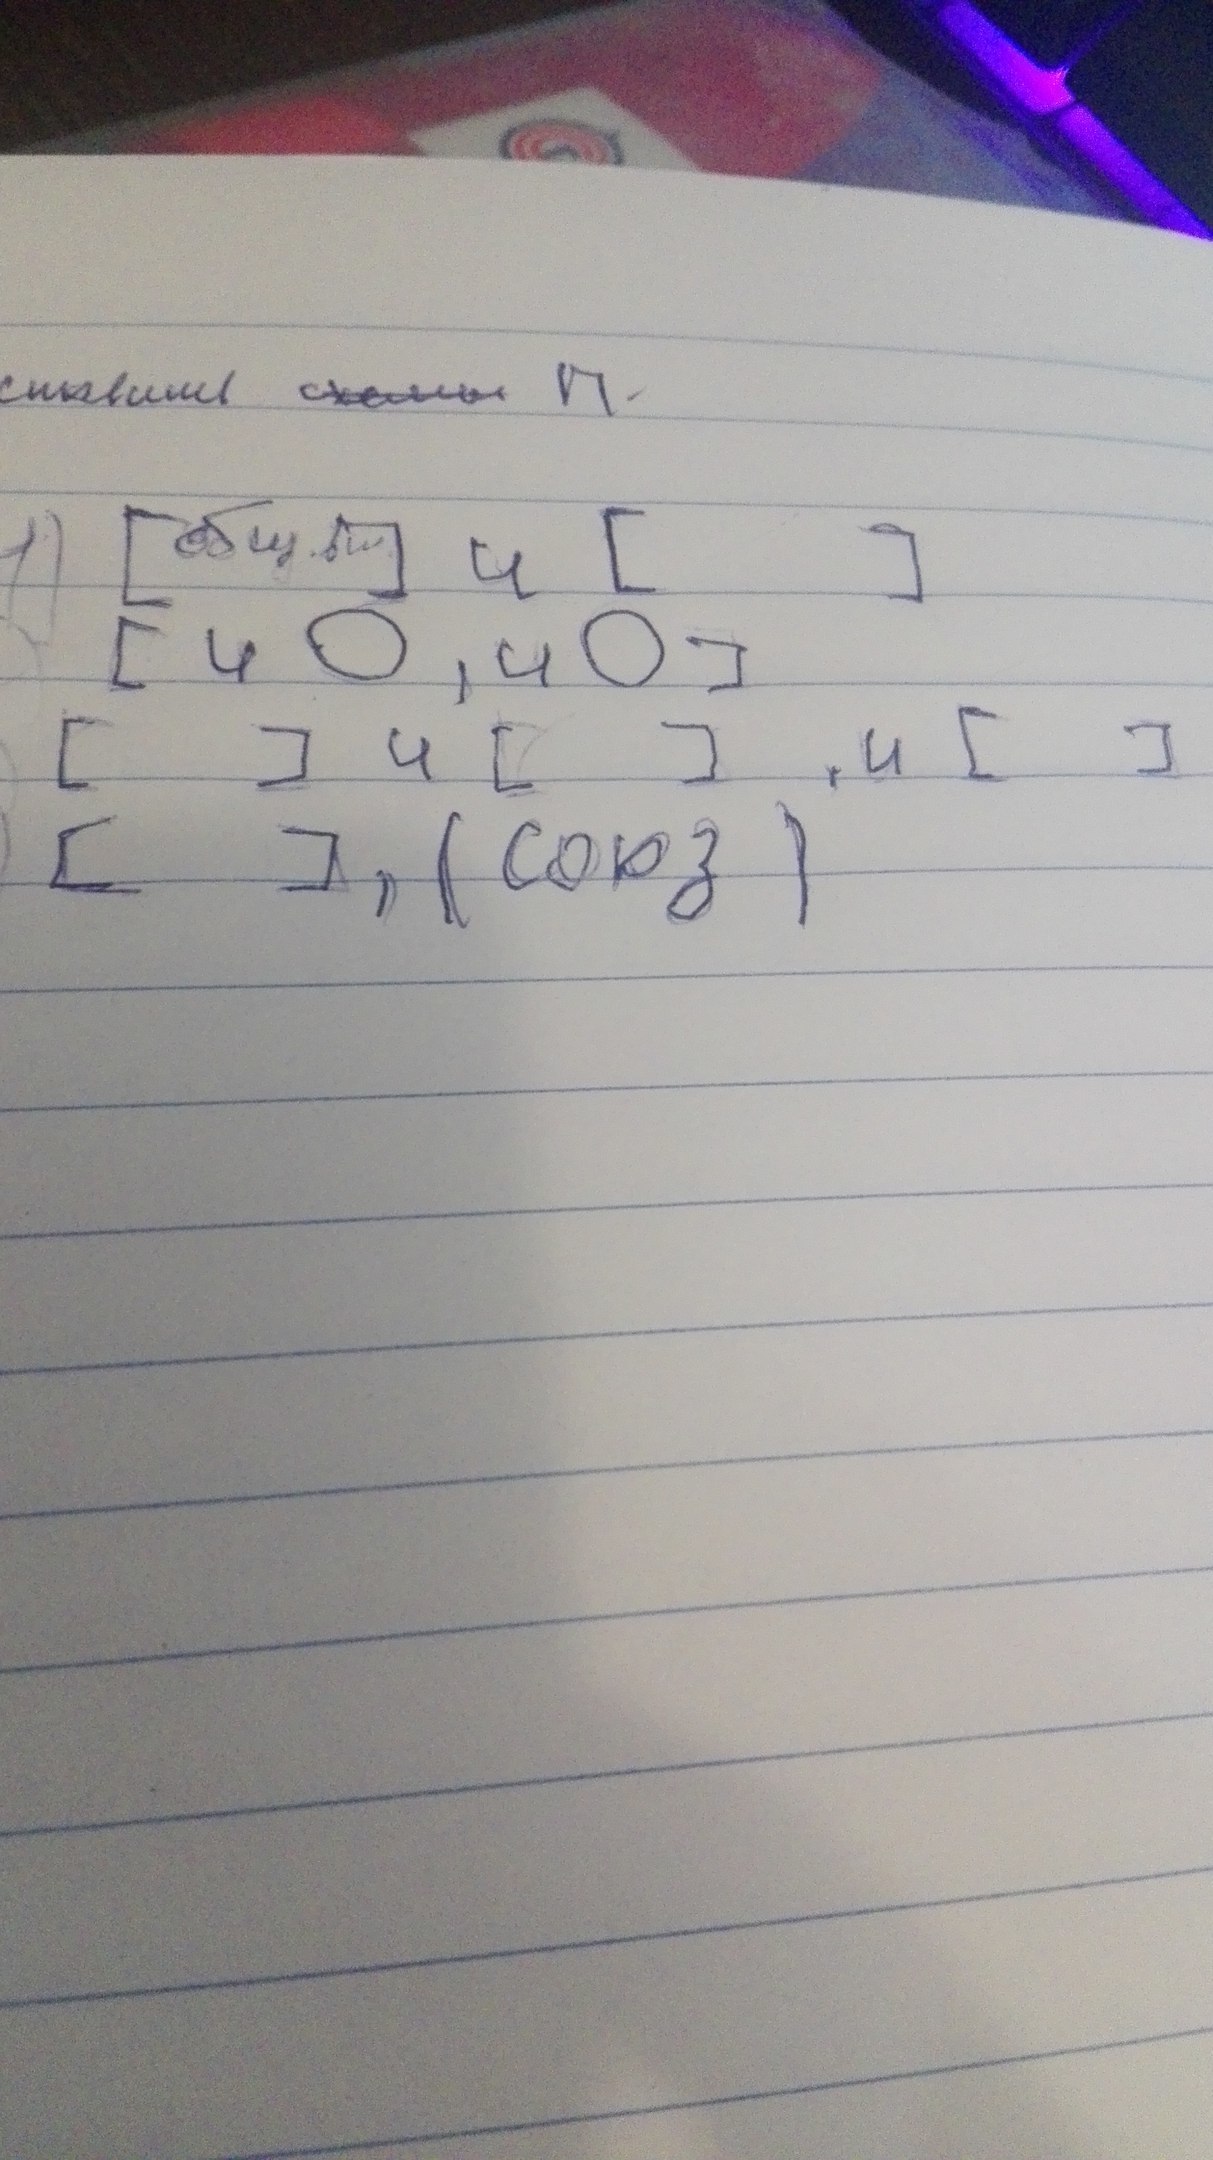 ставить схемы П.
1) [общ. вт.] и [ ]
[ и O, и O]
[ ] и [ ] , и [ ]
[ ], (союз)